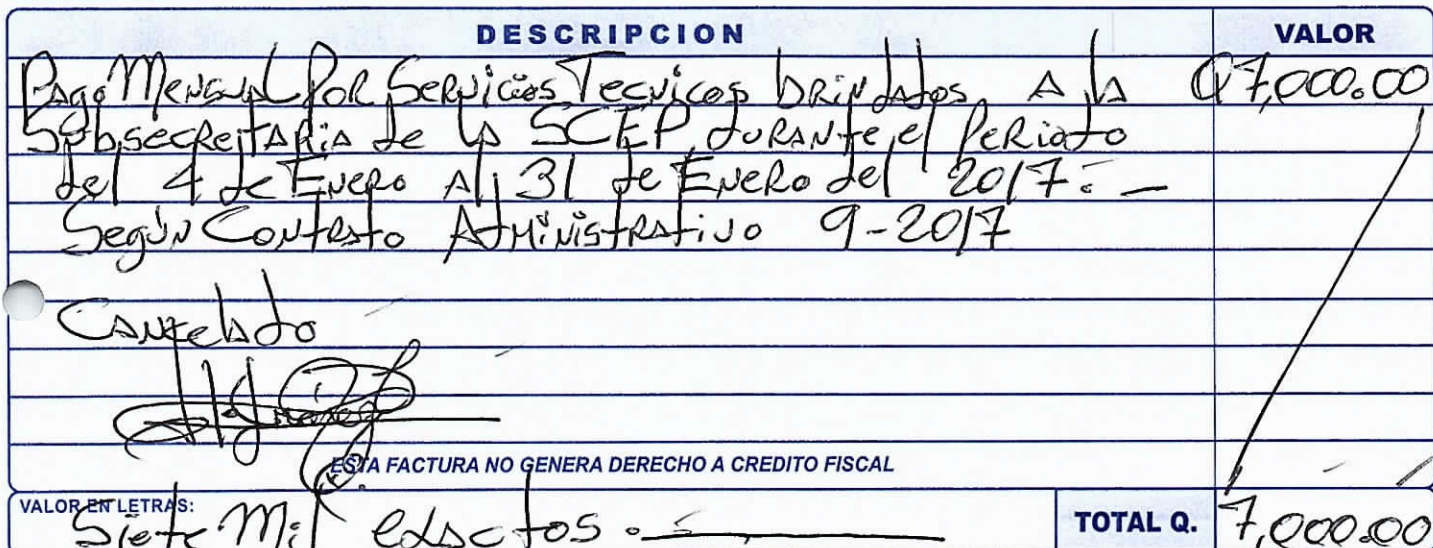 DESCRIPCION VALOR
Pago Mensual Por Servicios Tecnicos brindados A la Q7,000.00
Subsecretaria de la SCEP, durante el Periodo
del 4 de Enero Al 31 de Enero del 2017.-
Según Contrato Administrativo 9-2017
Cancelado
ESTA FACTURA NO GENERA DERECHO A CREDITO FISCAL
VALOR EN LETRAS: Siete Mil exactos.- TOTAL Q. 7,000.00